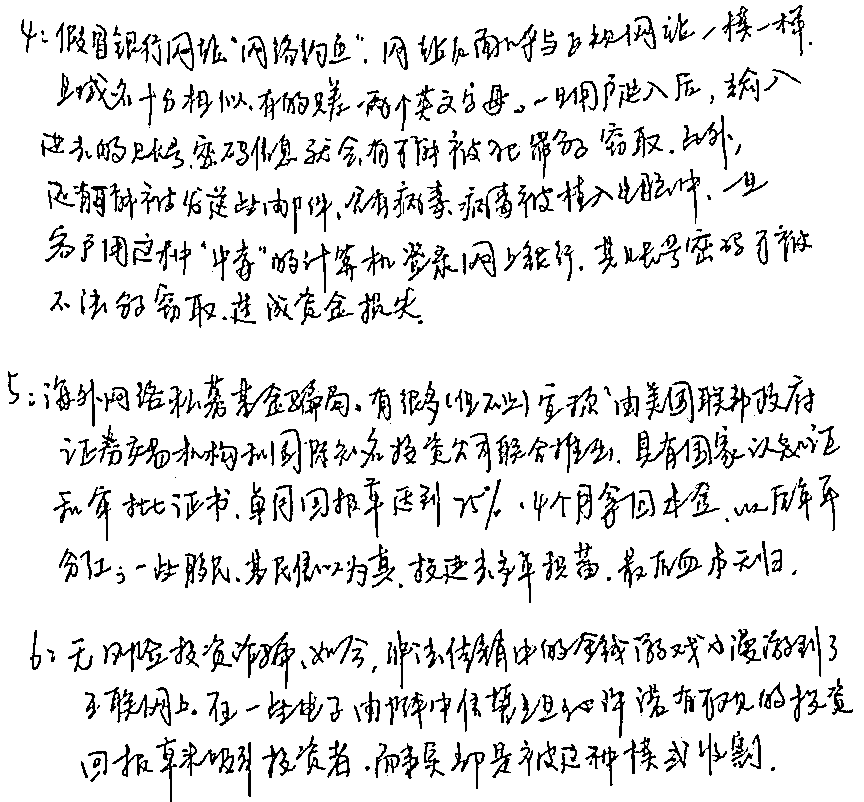 4:假冒银行网址"网络钓鱼".网站页面似乎与正规网站一模一样.
且域名十分相似.有的只差一两个英文字母。一旦用户进入后,输入
进去的账号.密码信息就会有可能被犯罪分子窃取.此外,
还有可能被发送些邮件,含有病毒.病毒被植入电脑中.一旦
客户用这种"中毒"的计算机登录网上银行.其账号密码可被
不法分子窃取.造成资金损失.
5:海外网络私募基金骗局。有很多(但不止)宣称"由美国联邦政府
证券交易机构和国际知名投资公司联合推出.具有国家认知证
和审批证书.单月回报率达到25%.4个月拿回本金.以后年年
分红;一些股民.基民信以为真.投进去多年积蓄.最后血本无归.
6:无风险投资诈骗.如今,非法传销中的金钱游戏也漫游到了
互联网上.在一些电子邮件中信誓旦旦地许诺有可观的投资
回报率来吸引投资者.而事实却是被这种模式收割.